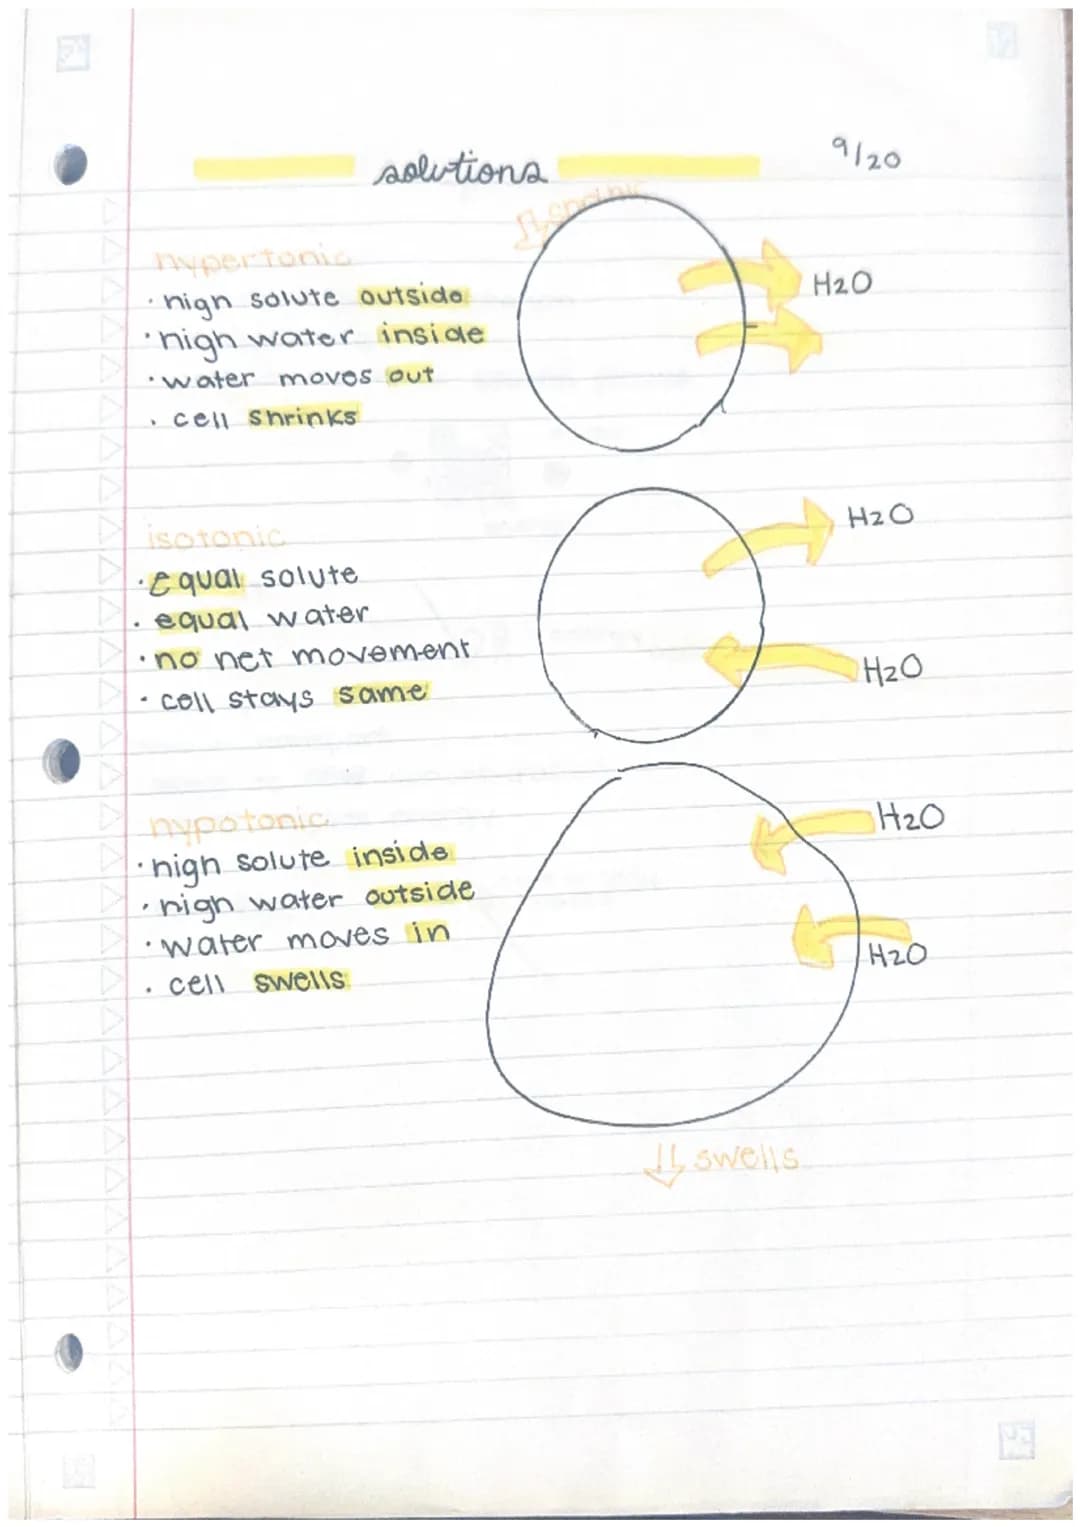 solutions
9/20
shrinks
hypertonic
· high solute outside
· high water inside
· water moves out
· cell shrinks
H2O
isotonic
· equal solute
· equal water
· no net movement
· cell stays same
H2O
H2O
hypotonic
· high solute inside
· high water outside
· water moves in
· cell swells
H2O
H2O
swells